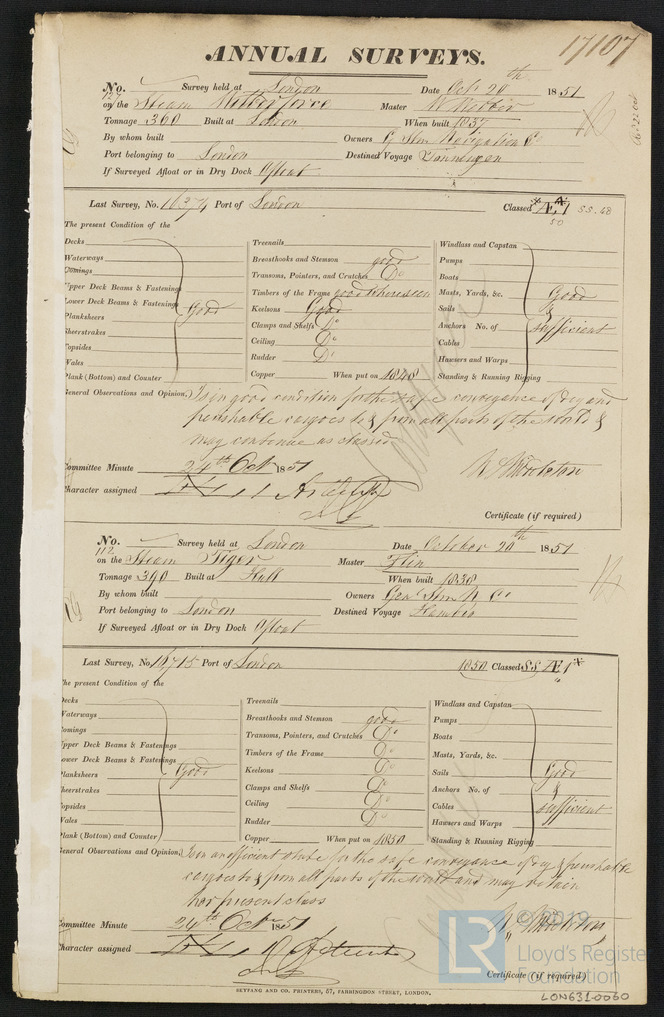 17107
ANNUAL SURVEYS.
No. Survey held at London Date Oct 20th 1851
127 on the Steam Wilberforce Master W
Tonnage 360 Built at London When built 1837
By whom built Owners G Stm Navigation Co
Port belonging to London Destined Voyage
If Surveyed Afloat or in Dry Dock Afloat
Last Survey, No. Port of London Classed Æ 1 SS. 48
50
The present Condition of the
Decks Treenails Windlass and Capstan
Waterways Breasthooks and Stemson good Pumps
Comings Transoms, Pointers, and Crutches Do Boats
Upper Deck Beams & Fastenings Timbers of the Frame good where seen Masts, Yards, &c. Good
Lower Deck Beams & Fastenings Good Keelsons Good Sails &
Planksheers Clamps and Shelfs Do Anchors No. of sufficient
Sheerstrakes Ceiling Do Cables
Topsides Rudder Do Hawsers and Warps
Wales Copper When put on 1848 Standing & Running Rigging
Plank (Bottom) and Counter
General Observations and Opinion, Is in good condition for the safe conveyance of dry and
perishable cargoes to & from all parts of the world &
may continue as classed
Committee Minute 24th Oct 1851
Character assigned
Certificate (if required)
No. Survey held at London Date October 20th 1851
112 on the Steam Tiger Master Flin
Tonnage 390 Built at Hull When built 1838
By whom built Owners Genl Stm N Co
Port belonging to London Destined Voyage Hambro
If Surveyed Afloat or in Dry Dock Afloat
Last Survey, No. 16715 Port of London 1850 Classed SS Æ 1*
The present Condition of the
Decks Treenails Windlass and Capstan
Waterways Breasthooks and Stemson good Pumps
Comings Transoms, Pointers, and Crutches Do Boats
Upper Deck Beams & Fastenings Timbers of the Frame Do Masts, Yards, &c.
Lower Deck Beams & Fastenings Keelsons Do Sails Good
Planksheers Good Clamps and Shelfs Do Anchors No. of &
Sheerstrakes Ceiling Do Cables sufficient
Topsides Rudder Do Hawsers and Warps
Wales Copper When put on 1850 Standing & Running Rigging
Plank (Bottom) and Counter
General Observations and Opinion, Is in an efficient state for the safe conveyance of dry & perishable
cargoes to & from all parts of the world and may retain
her present class
Committee Minute 24th Oct 1851
Character assigned
Certificate (if required)
SEYFANG AND CO. PRINTERS, 57, FARRINGDON STREET, LONDON.
© 2019
LR Lloyd's Register
Foundation
LON631-0060